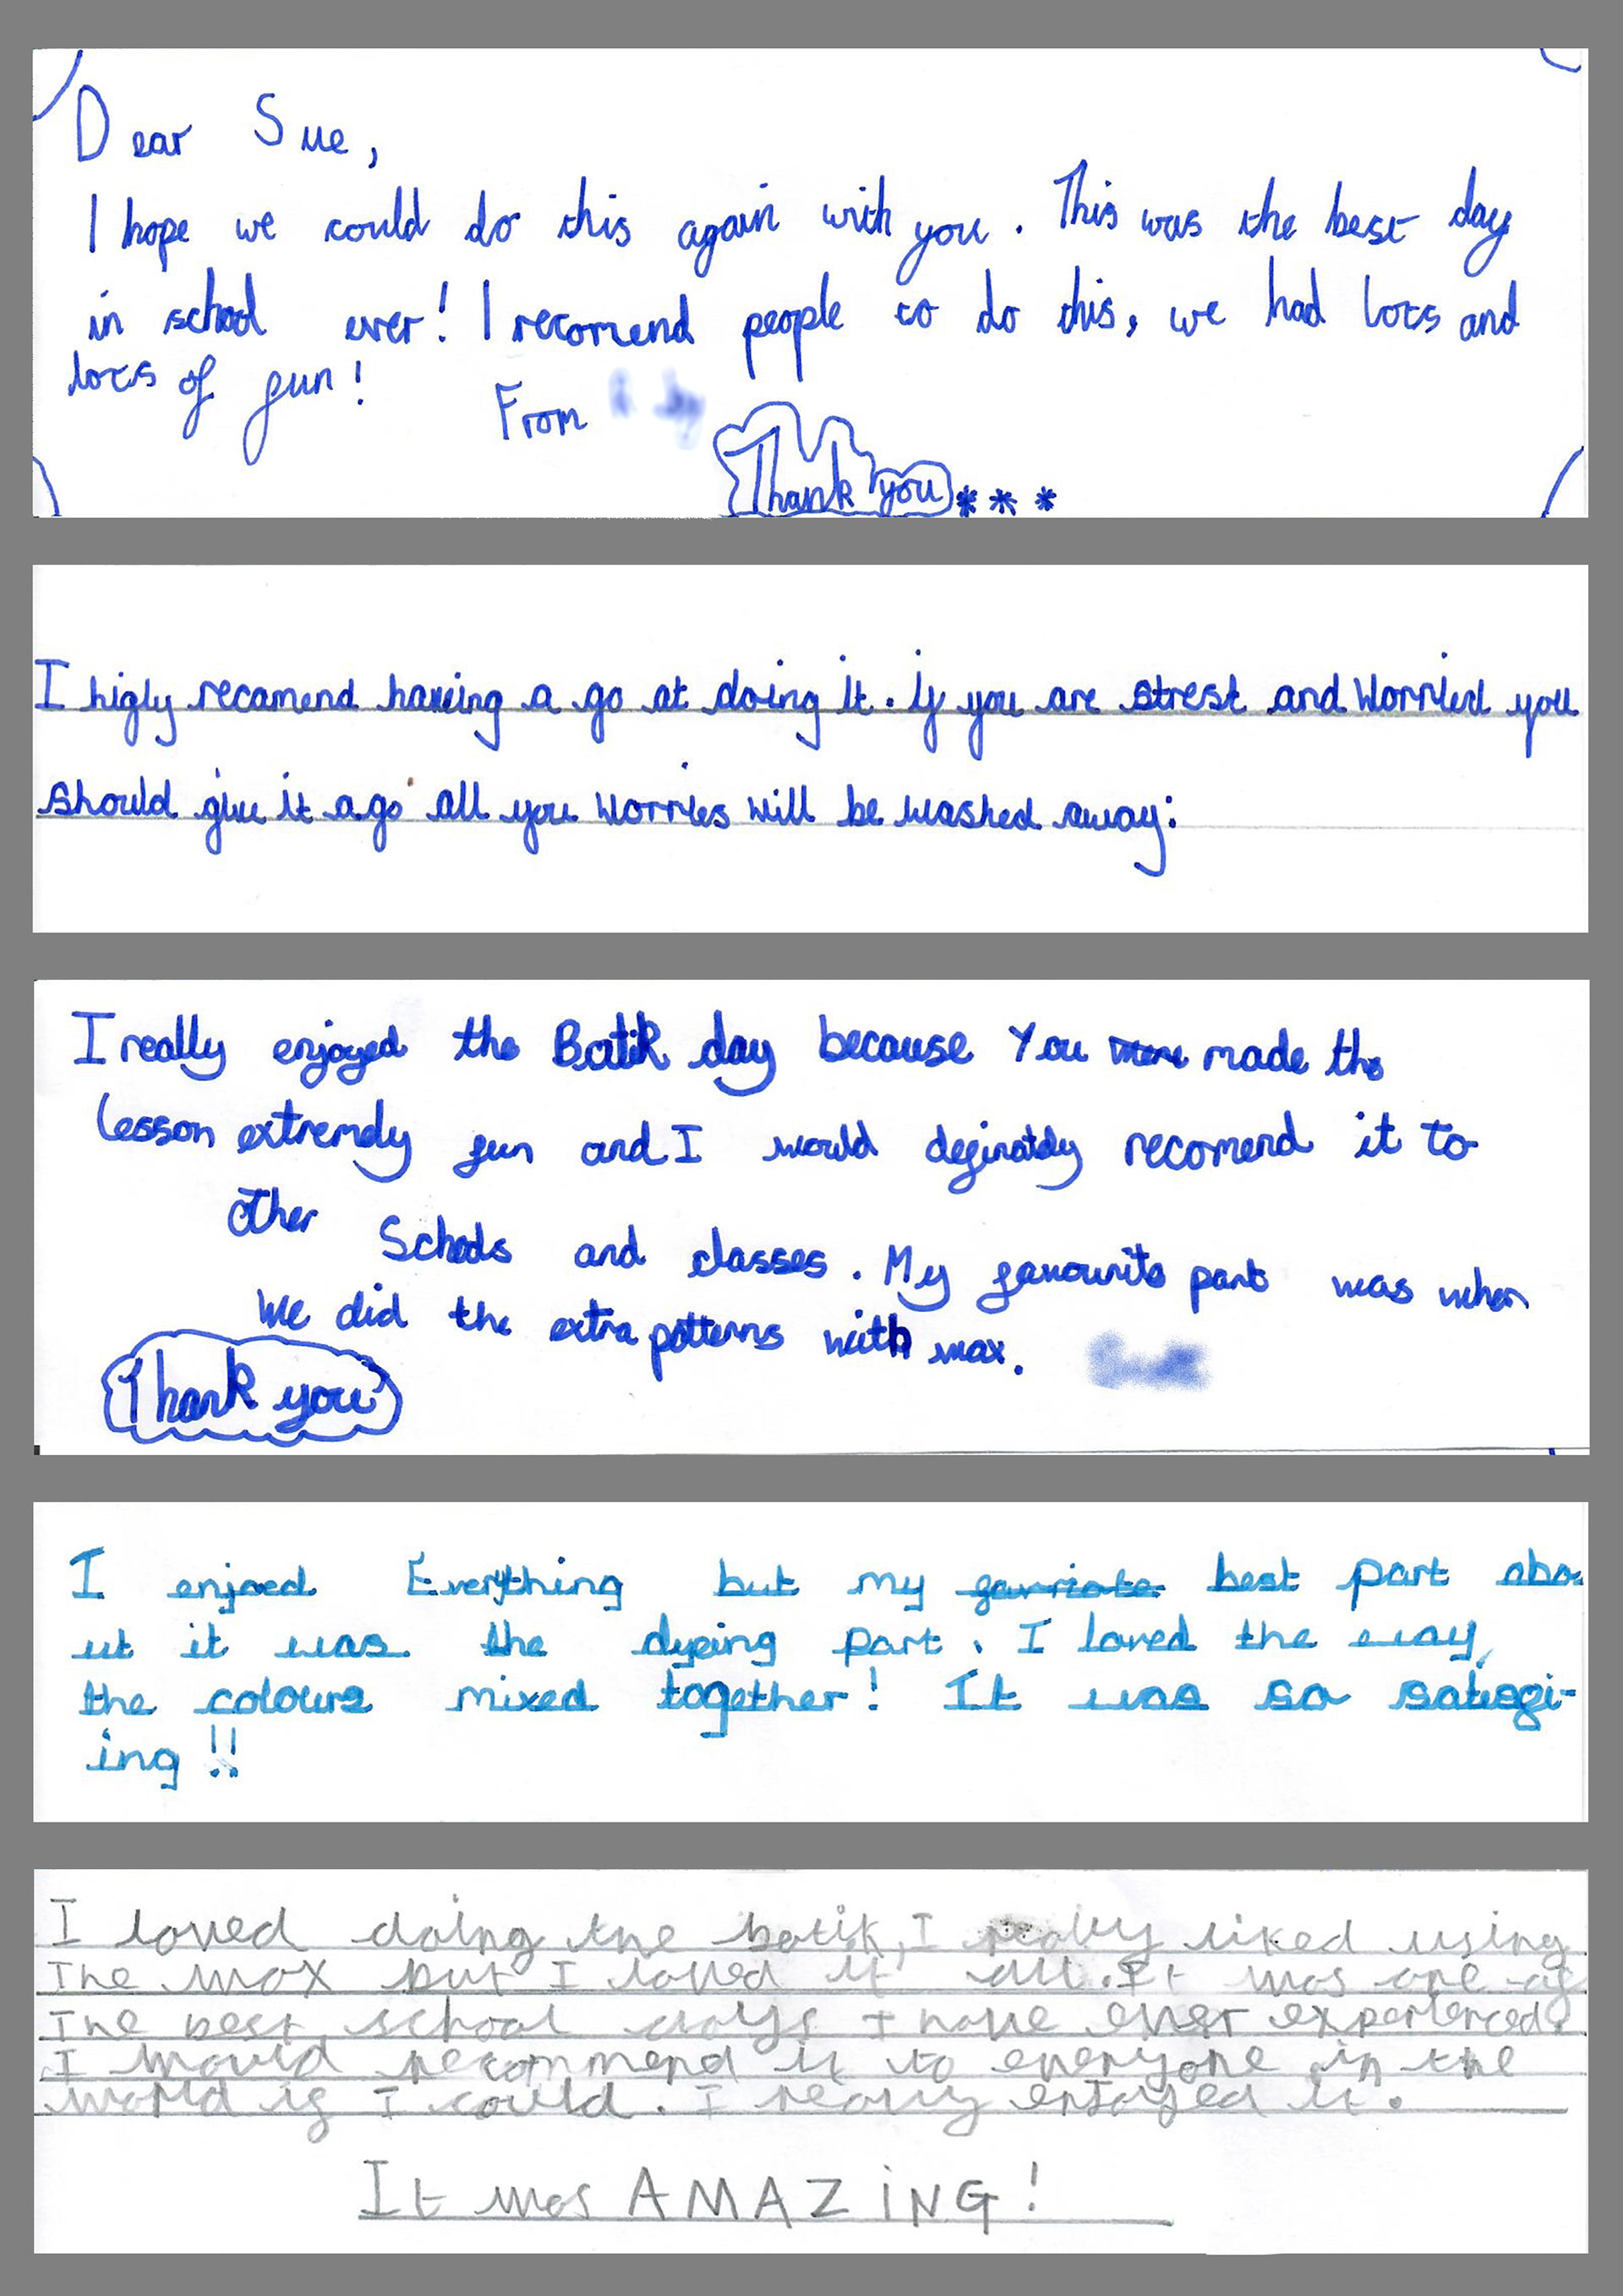 Dear Sue,
I hope we could do this again with you. This was the best day
in school ever! I recomend people to do this, we had lots and
lots of fun!
From
Thank you ***
I higly recamend having a go at doing it. If you are strest and worried you
should give it a go all you worries will be washed away:
I really enjoyed the Batik day because You made the
lesson extremely fun and I would definately recomend it to
other Schools and classes. My favourite part was when
we did the extra patterns with wax.
Thank you
I enjoed Everything but my favriate best part abo
ut it was the dyeing part. I loved the way
the colours mixed together! It was so satisfi-
ing!!
I loved doing the batik, I really liked using
The wax but I loved it all. It was one of
The best school days I have ever experienced.
I would recommend it to everyone in the
world if I could. I really enjoyed it.
It was AMAZING!